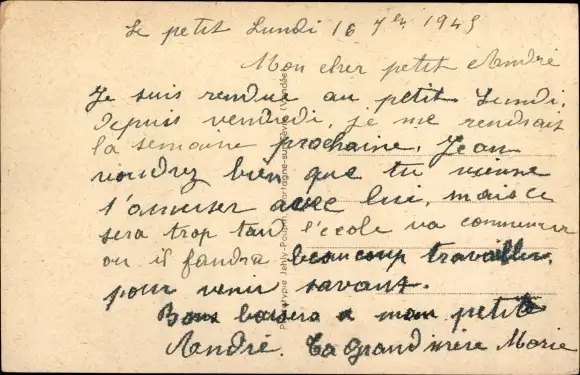 Le petit Lundi 16 7bre 1945
Mon cher petit André
Je suis rendue au petit Lundi,
depuis vendredi, je me rendrais
la semaine prochaine, Jean
voudrez bien que tu vienne
t'amuser avec lui, mais ce
sera trop tard l'école va commencer
ou il faudra beaucoup travailler,
pour venir savant.
Bons baisers a mon petit
André. Ta Grand mère Marie
Phototypie Jehly-Poupin, Mortagne-sur-Sèvre (Vendée)